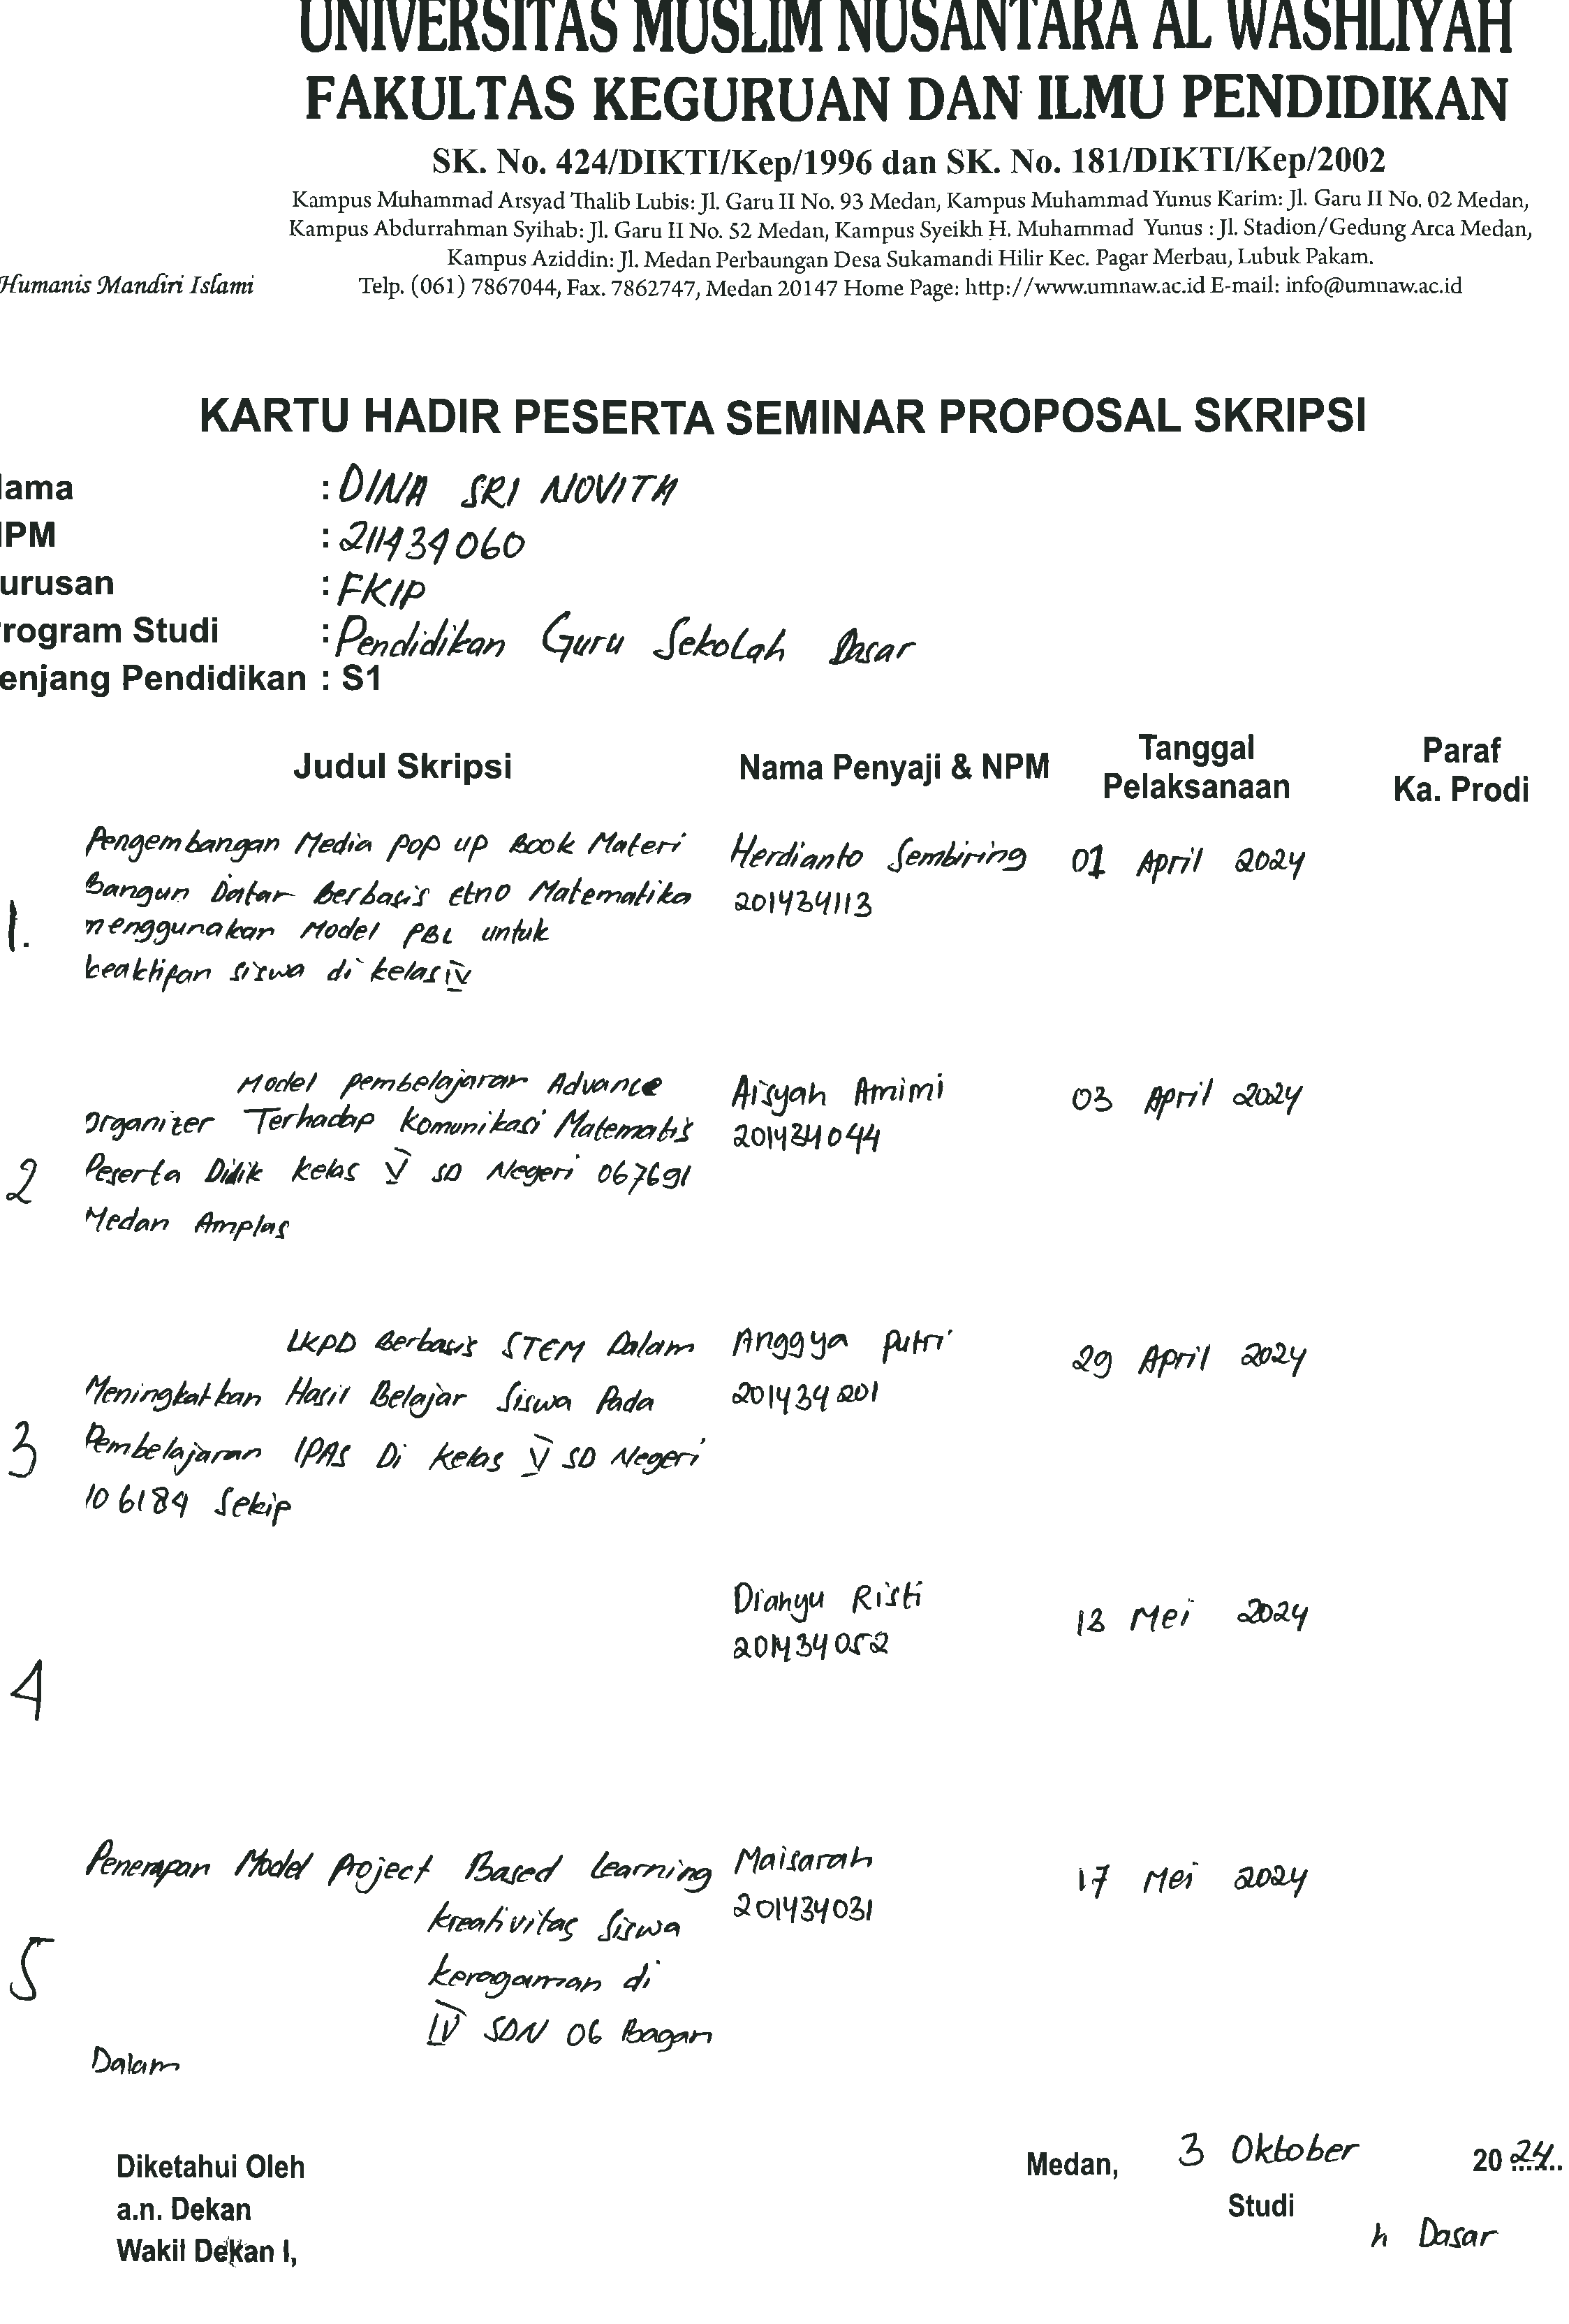 UNIVERSITAS MUSLIM NUSANTARA AL WASHLIYAH
FAKULTAS KEGURUAN DAN ILMU PENDIDIKAN
SK. No. 424/DIKTI/Kep/1996 dan SK. No. 181/DIKTI/Kep/2002
Kampus Muhammad Arsyad Thalib Lubis: Jl. Garu II No. 93 Medan, Kampus Muhammad Yunus Karim: Jl. Garu II No. 02 Medan,
Kampus Abdurrahman Syihab: Jl. Garu II No. 52 Medan, Kampus Syeikh H. Muhammad Yunus : Jl. Stadion/Gedung Arca Medan,
Kampus Aziddin: Jl. Medan Perbaungan Desa Sukamandi Hilir Kec. Pagar Merbau, Lubuk Pakam.
Humanis Mandiri Islami Telp. (061) 7867044, Fax. 7862747, Medan 20147 Home Page: http://www.umnaw.ac.id E-mail: info@umnaw.ac.id
KARTU HADIR PESERTA SEMINAR PROPOSAL SKRIPSI
ama : DINA SRI NOVITA
PM : 211434060
urusan : FKIP
rogram Studi : Pendidikan Guru Sekolah Dasar
enjang Pendidikan : S1
Judul Skripsi Nama Penyaji & NPM Tanggal Pelaksanaan Paraf Ka. Prodi
1.
Pengembangan Media Pop up Book Materi
Bangun Datar Berbasis etno Matematika
menggunakan Model PBL untuk
keaktifan siswa di kelas IV
Herdianto Sembiring
201434113
01 April 2024
2
Model pembelajaran Advance
Organizer Terhadap Komunikasi Matematis
Peserta Didik kelas V SD Negeri 067691
Medan Amplas
Aisyah Amimi
201434044
03 April 2024
3
LKPD Berbasis STEM Dalam
Meningkatkan Hasil Belajar Siswa Pada
Pembelajaran IPAS Di kelas V SD Negeri
106184 Sekip
Anggya putri
201434201
29 April 2024
4
Dianyu Risti
201434052
13 Mei 2024
5
Penerapan Model Project Based Learning
kreativitas Siswa
keragaman di
IV SDN 06 Bagan
Dalam
Maisarah
201434031
17 Mei 2024
Diketahui Oleh
a.n. Dekan
Wakil Dekan I,
Medan, 3 Oktober 2024
Studi
h Dasar